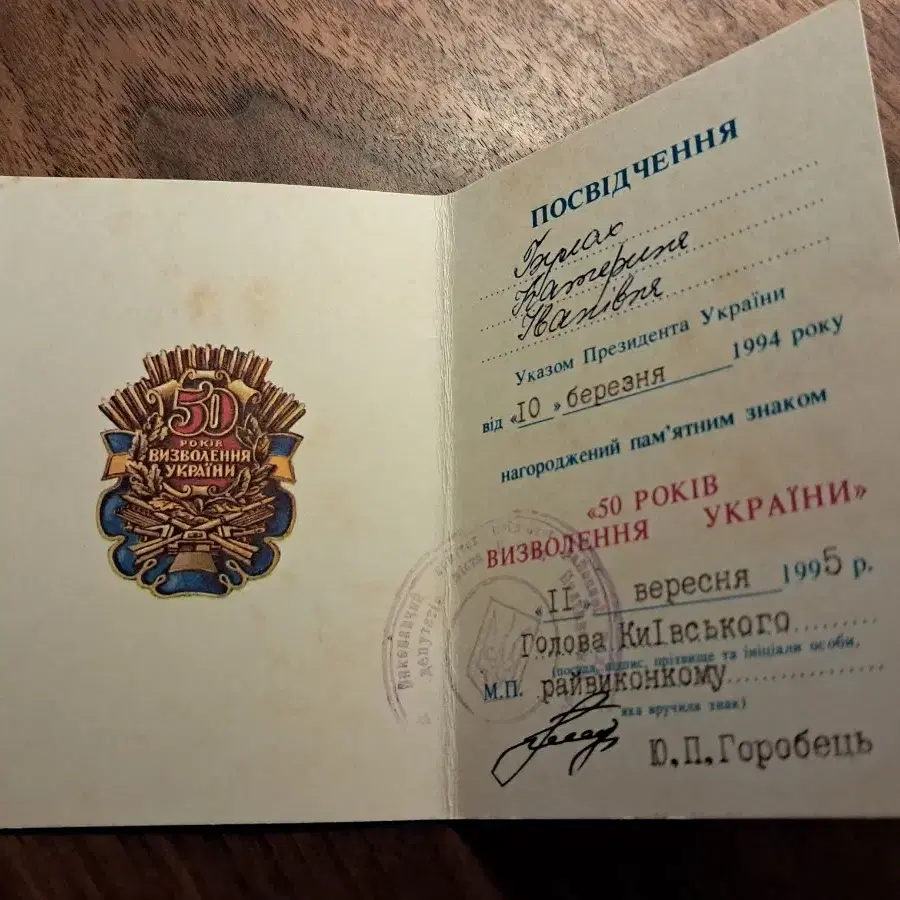 50
РОКІВ
ВИЗВОЛЕННЯ
УКРАЇНИ
ПОСВІДЧЕННЯ
Булах
Катерина
Іванівна
Указом Президента України
від «10» березня 1994 року
нагороджений пам’ятним знаком
«50 РОКІВ
ВИЗВОЛЕННЯ УКРАЇНИ»
«11» вересня 1995 р.
Голова Київського
(посада, підпис, прізвище та ініціали особи,
М.П. райвиконкому
яка вручила знак)
Ю.П.Горобець
Виконавчий
депутатів